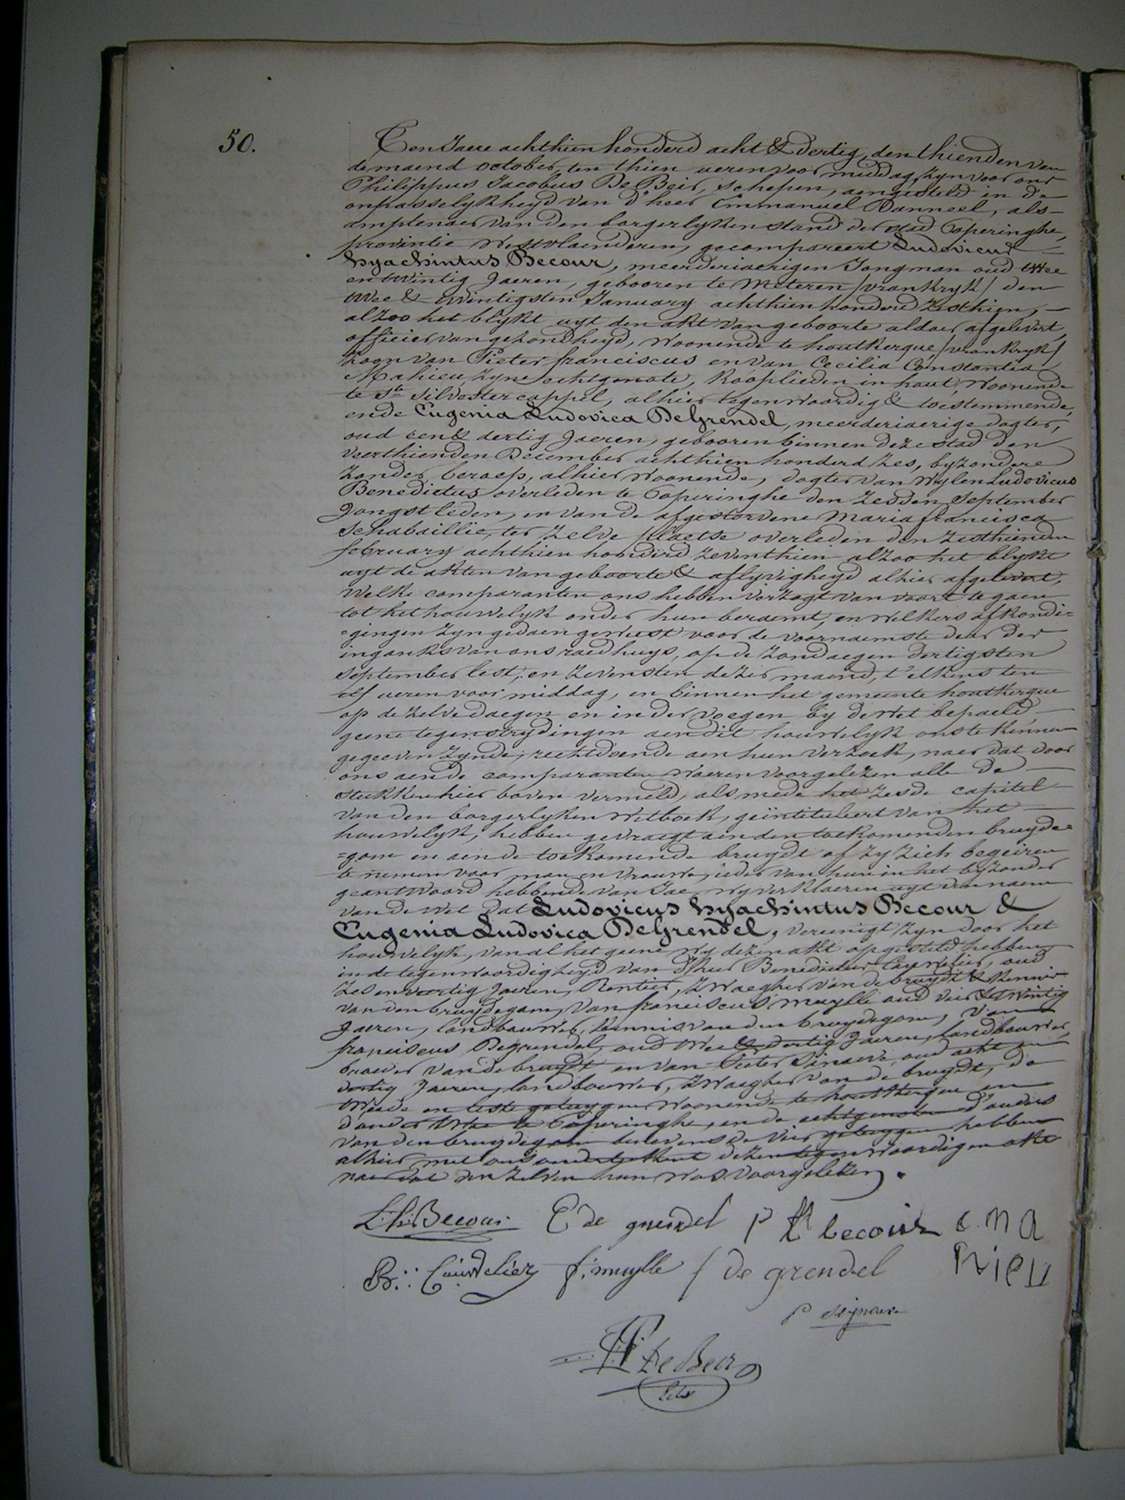 50.
Ten Jaere achthien honderd acht & dertig, den thienden van
de maend october, ten thien ueren voor middag, zyn voor ons
Philippus Jacobus De Beir, schepen, aengesteld in d'
onpasselykheyd van d'heer Emmanuel Vanneel, als
amptenaer van den borgerlyken stand der stad Poperinghe,
provintie Westvlaenderen, gecompareert Ludovicus
hyachintus Becour, meerderjaerigen Jongman oud twee
en twintig Jaeren, gebooren te Meteren /vrankryk/ den
twee & twintigsten January achthien honderd zesthien,
alzoo het blykt uyt den akt van geboorte aldaer afgelevert,
officier van gezondheyd, woonende te houtkerque /vrankryk/
zoon van Pieter franciscus en van Cecilia Constantia
Mahieu, zyne echtgenote, Kooplieden in haut, woonende
te St Silvestercappel, alhier tegenwoordig & toestemmende,
ende Eugenia Ludovica DeGrendel, meerderjaerige dogter,
oud een & dertig Jaeren, gebooren binnen deze stad den
veerthienden December achthien honderd zes, byzondere
zonder beroep, alhier woonende, dogter van wylen Ludovicus
Benedictus overleden te Poperinghe den zesden September
Jongstleden, en van de afgestorvene Maria francisca
Schabaillie, ter zelve plaetse overleden den zesthienden
february achthien honderd zeventhien alzoo het blykt
uyt de akten van geboorte & aflyvigheyd alhier afgelevert,
Welke comparanten ons hebben verzogt van voort te gaen
tot het houwelyk onder hun beraemt, en welkers afkondi=
=gingen zyn gedaen geweest voor de voornaemste deur der
ingank van ons raedhuys, op de zondaegen dertigsten
September lest, en zevensten dezer maend, t'elkens ten
elf ueren voor middag, en binnen het gemeente houtkerque
op de zelve daegen en in der voegen by de wet bepaeld
geene tegenstrydingen aen dit houwelyk ons te kennen
gegeven zynde, rechtdoende aen hun verzoek, naer dat door
ons aen de comparanten waeren voorgelezen alle de
stukken hier boven vermeld, als mede het zesde capitel
van den borgerlyken wetboek, geïntituleert van het
houwelyk, hebben gevraegt aen den toekomenden bruyde=
=gom en aen de toekomende bruydt of zy zich begeiren
te nemen voor man en vrouwe, ieder van hun in het byzonder
geantwoord hebbende van Jae, wy verklaeren uyt den naem
van de wet dat Ludovicus hyachintus Becour &
Eugenia Ludovica DeGrendel, vereenigt zyn door het
houwelyk, van al het geene wy dezen akt opgesteld hebben
in de tegenwoordigheyd van d'heer Benedictus Couvelier, oud
zes en veertig Jaeren, Rentier, zwaeger van de bruydt & kennis
van den bruydegom, van franciscus Muylle oud vier & twintig
Jaeren, landbouwer, kennis van den bruydegom, van
franciscus Degrendel, oud twee & dertig Jaeren, landbouwer,
broeder van de bruydt en van Pieter oud acht en
dertig Jaeren, landbouwer, zwaegher van de bruydt, de
twede en leste getuygen woonende te houtkerque en
d'ander twee te Poperinghe, en de echtgenoten d'ouders
van den bruydegom benevens de vier getuygen hebben
alhier met ons onderteekent dezen tegenwoordigen akt
naer dat den zelven hun was voorgelezen.
L.h. Becour E de grendel P f becour c. m a
hieu
B.: Couvelier f: muylle f de grendel
P
De Beir